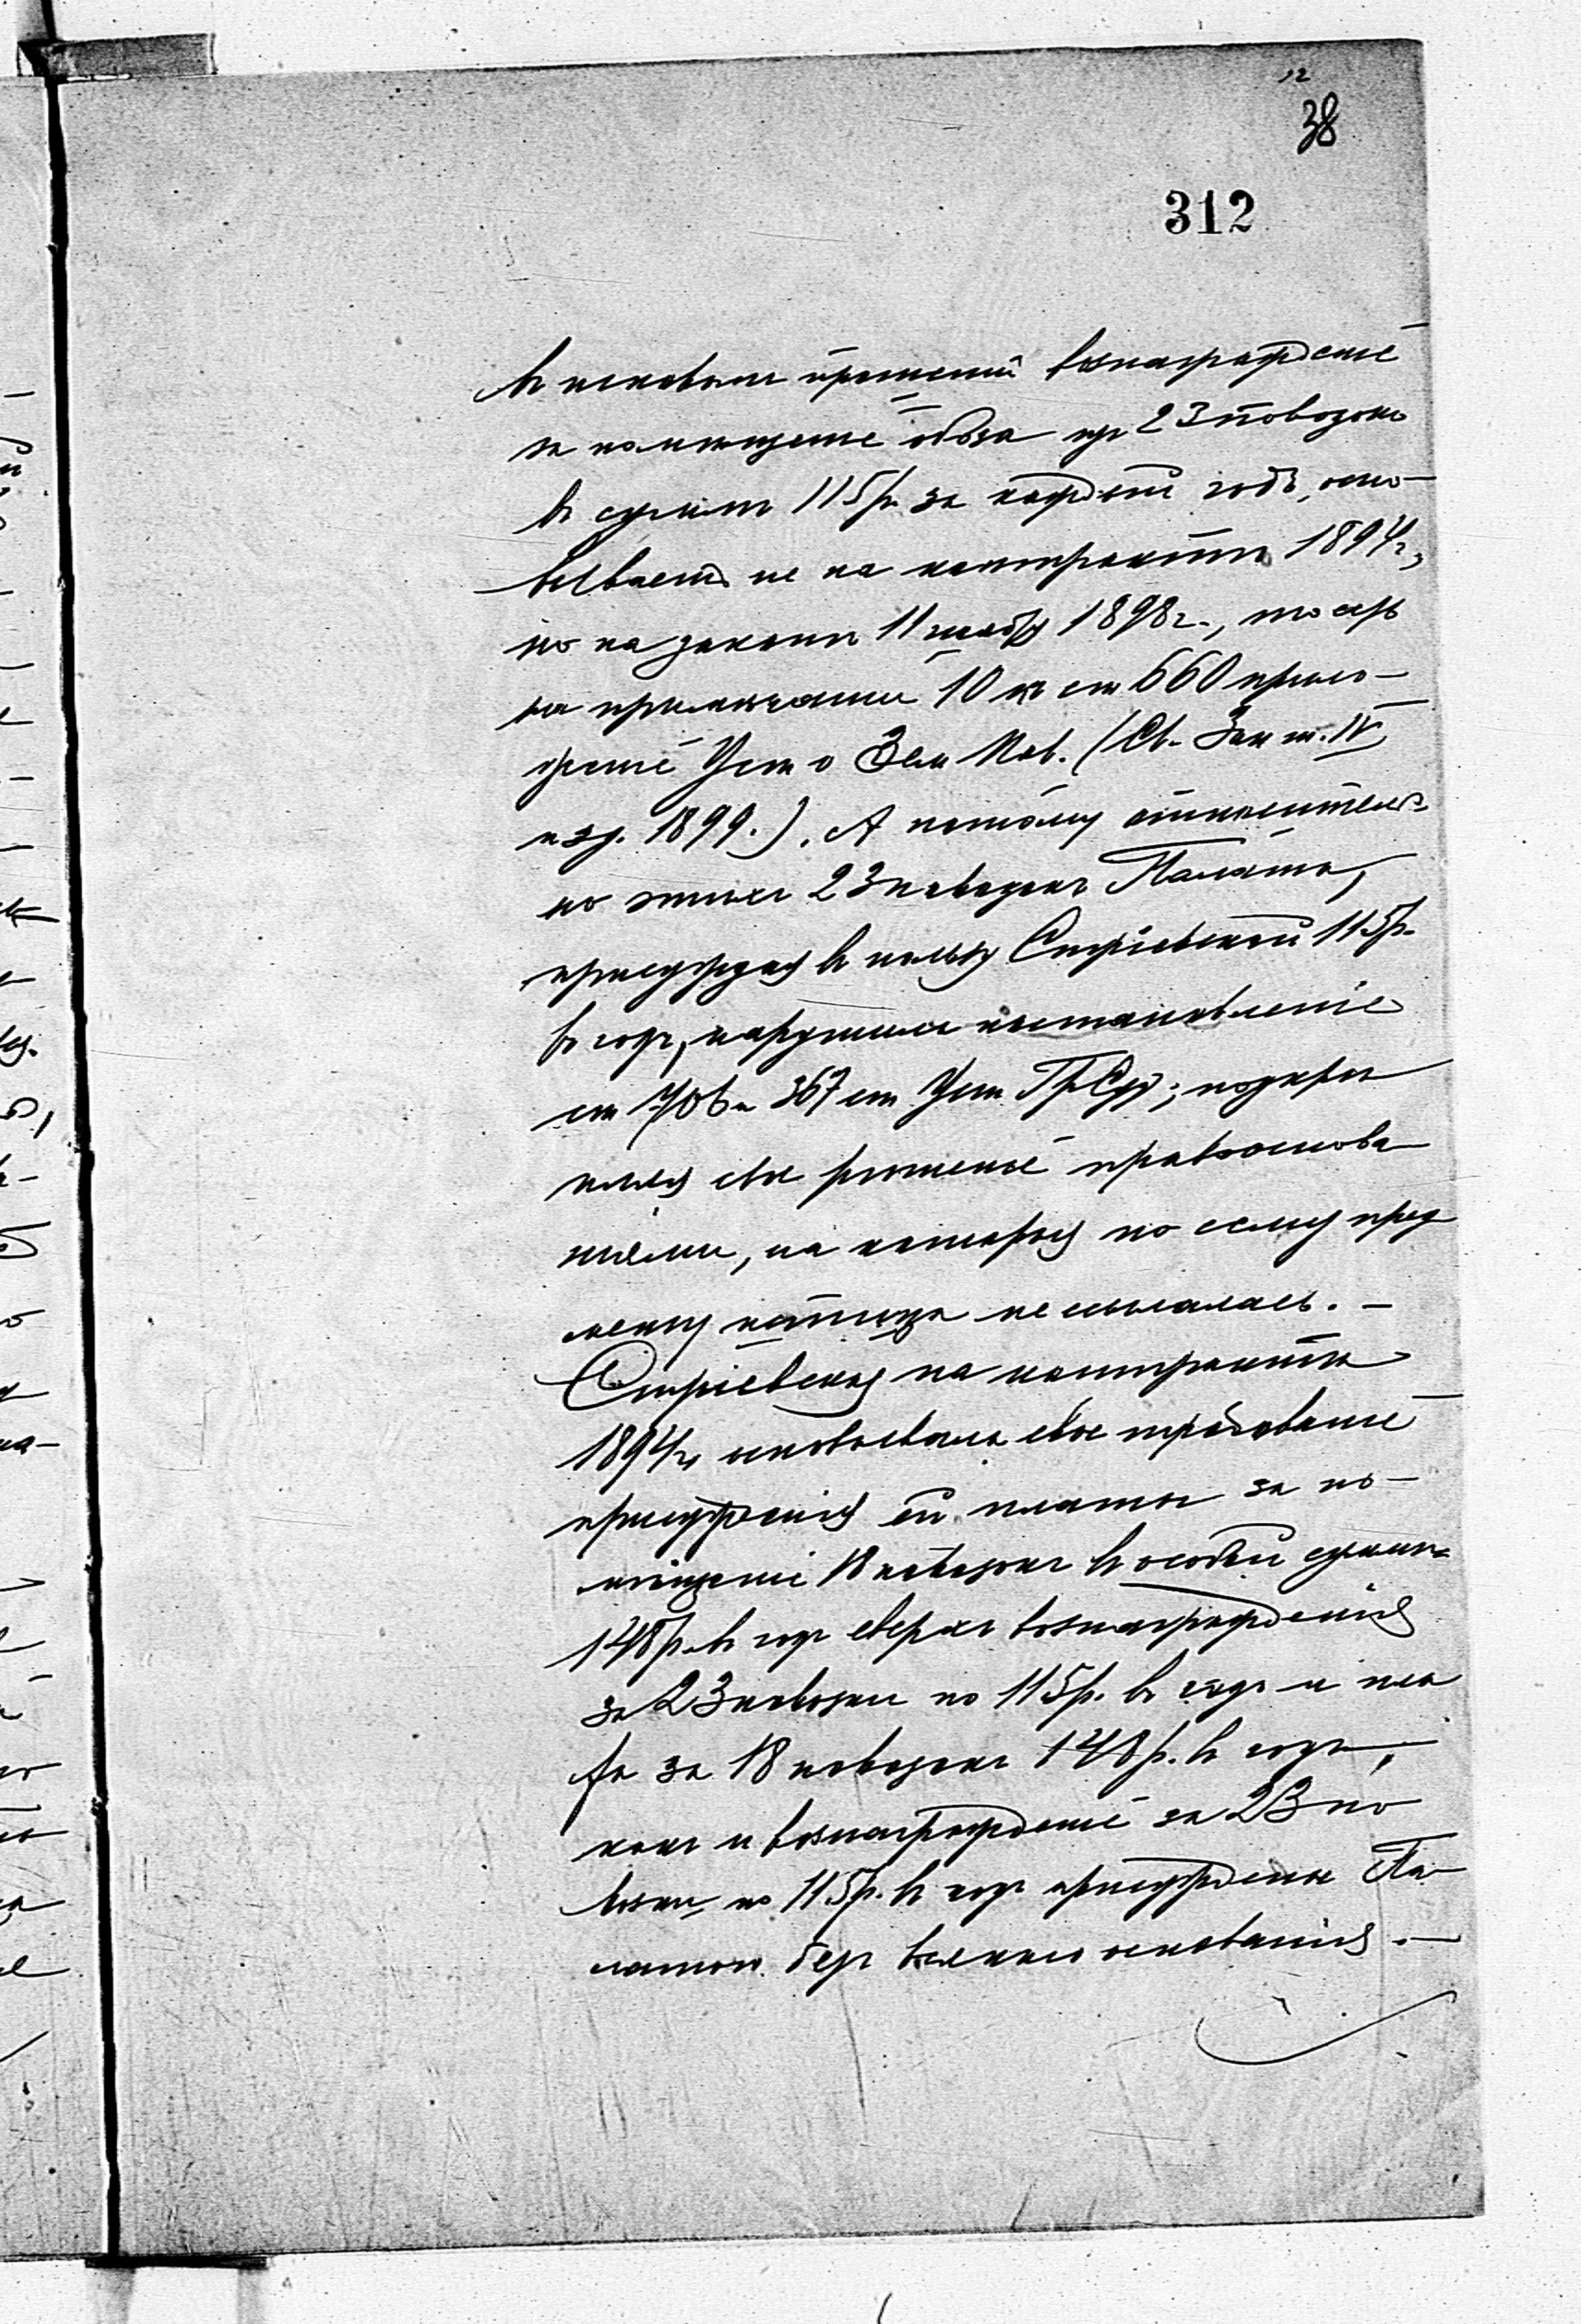 12
38
312
въ исковомъ прошеніи вознагражденіе
за помѣщеніе обоза изъ 23 повозокъ
въ суммѣ 115 р. за каждый годъ, осно-
вываетъ не на контрактѣ 1894 г.,
но на законѣ 11 1898 г., то есть
на примѣчаніи 10 къ ст 660 прило-
женіе Уст о Зем Пов. (Св. Зак т. IV
изд. 1899.). А потому относитель-
но этихъ 23 повозокъ Палата,
присуждая въ пользу Стріевской 115 р.
въ годъ, нарушила постановленіе
ст 706 и 367 ст Уст Гр Суд; подкрѣ
пляя свое рѣшеніе правооснова
ніями, на которыя по сему пред
мету истица не ссылалась. —
Стріевская на контрактѣ
1894 г. основывала свое требованіе
присужденія ей платы за по-
мѣщеніе 18 повозокъ въ особой суммѣ
148 р. въ годъ сверхъ вознагражденія
за 23 повозки по 115 р. въ годъ и пла
та за 18 повозокъ 148 р. въ годъ,
какъ и вознагражденіе за 23 по
возки по 115 р. въ годъ присуждены Па-
латою безъ всякаго основанія. —